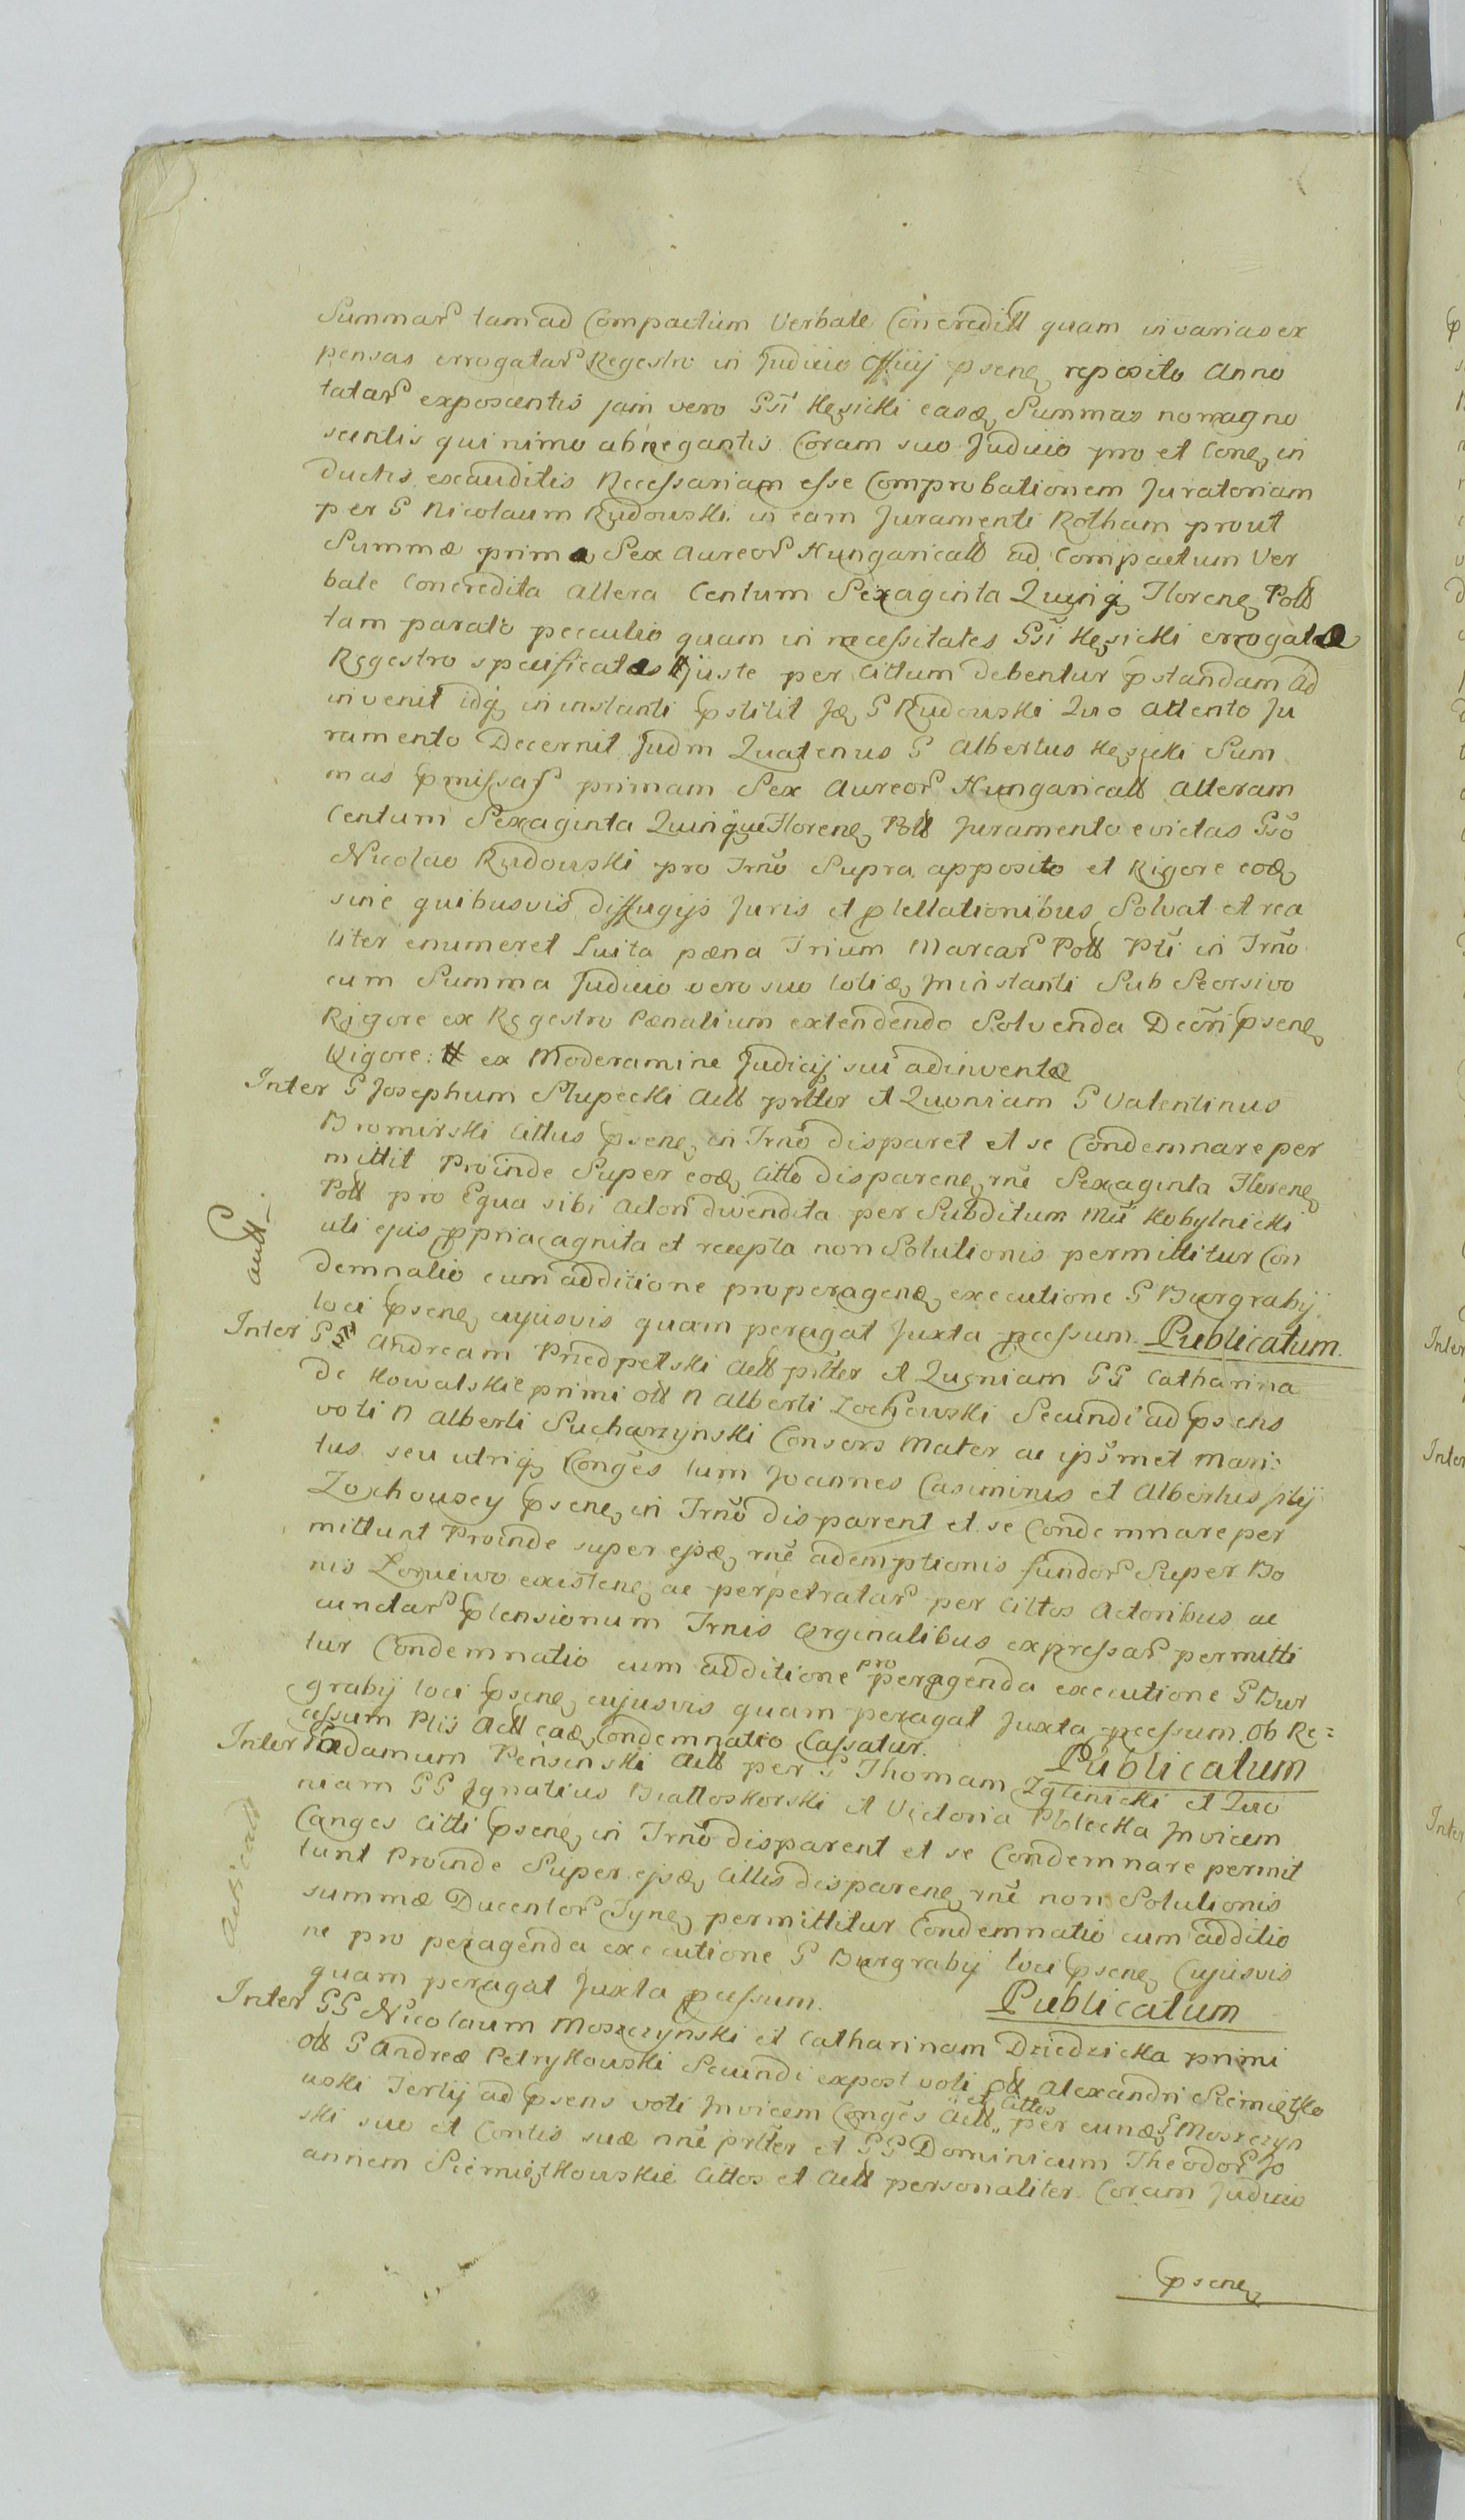 Summar tam ad Compactum Verbale Concreditt quam in varias ex
pensas errogatar Regestro in Judicio Officij psene reposito Anno
tatar exposcentis jam vero Gsi Kęsicki easd Summas no magno
scentis qui nimo abnegantis Coram suo Judicio pro et Cone in
ductis exauditis Necessariam esse Comprobationem Juratoriam
per G Nicolaum Rudowski in eam Juramenti Rotham prout
Summæ prima Sex Aureor Hungaricall ad Compactum Ver
bale Concredita altera Centum Sexaginta Quinq Florene Poll
tam parato peculio quam in necessitates Gsi Kęsicki errogatæ
Regestro specificatæ juste per Cittum debentur pstandam ad
invenit idq in instanti pstitit Jd G Rudowski Quo attento Ju
ramento Decernit Judm Quatenus G Albertus Kęsicki Sum
mas pmissas primam Sex Aureor Hungaricall alteram
Centum Sexaginta Quinque Florene Poll Juramento evictas Gso
Nicolao Rudowski pro Trno Supra apposito et Rigore eod
sine quibusvis diffugijs Juris et ptellationibus Solvat et rea
liter enumeret Luita pæna Trium Marcar Poll Pti in Trno
cum Summa Judicio vero suo totid Jninstanti Sub Seorsivo
Rigore ex Regestro Pænalium extendendo Solvenda Decri psene
Vigore: ex Moderamine Judicij sui adinventæ
Inter G Josephum Slupecki Actt prtter et Quoniam G Valentinus
Bromirski Cittus psene in Trno disparet et se Condemnare per
mittit Proinde Super eod Citto disparene rne Sexaginta Florene
Poll pro Equa sibi Actori divendita per Subditum Mci Kobylnicki
uti ejus ppria agnita et recepta non Solutionis permittitur Con
demnatio cum additione pro peragend executione G Burgrabij
loci psene cujusvis quam peragat Juxta pcessum. Publicatum.
Inter G Andream Przedpelski Actt prtter et Quoniam GG Catharina
de Kowalskie primi ott N Alberti Zochowski Secundi ad psens
voti N Alberti Sucharzynski Consors Mater ac ipsmet Mari:
tus seu utriq Conges tum Joannes Casimirus et Albertus filij
Zochowscy psene in Trno disparent et se Condemnare per
mittunt Proinde super ejsd rne ademptionis fundor Super Bo
nis existene ac perpetratar per Cittos Actoribus ac
cunctar ptensionum Trnis Orginalibus expressar permitti
tur Condemnatio cum additione pro peragenda executione G Bur
grabij loci psene cujusvis quam peragat Juxta pcessum. Ob Re=
cessum Ptis Actt ead Condemnatio Cassatur. Publicatum
Inter Adamum Pensenski Actt per G Thomam Zglinicki et Quo
niam GG Jgnatius Bialloskorski et Victoria Plotecka Jnvicem
Canges Citti psene in Trno disparent et se Condemnare permit
tunt Proinde Super ejsd Cittis disparene rne non Solutionis
summæ Ducentor Tyne permittitur Condemnatio cum additio
ne pro peragenda executione G Burgrabij loci psene Cujusvis
quam peragat Juxta pcessum. Publicatum
Inter GG Nicolaum Moszczynski et Catharinam Dziedzicka primi
ott G Andreæ Petrykowski Secundi expost voti ott Alexandri Siemiętko
wski Tertij ad psens voti Jnvicem Conges Actt et Cittos per eund G Moszczyn
ski suo et Contis suæ nne prtter et GG Dominicum Theodor Jo
annem Siemiętkowskie Cittos et Actt personaliter Coram Judicio
psene